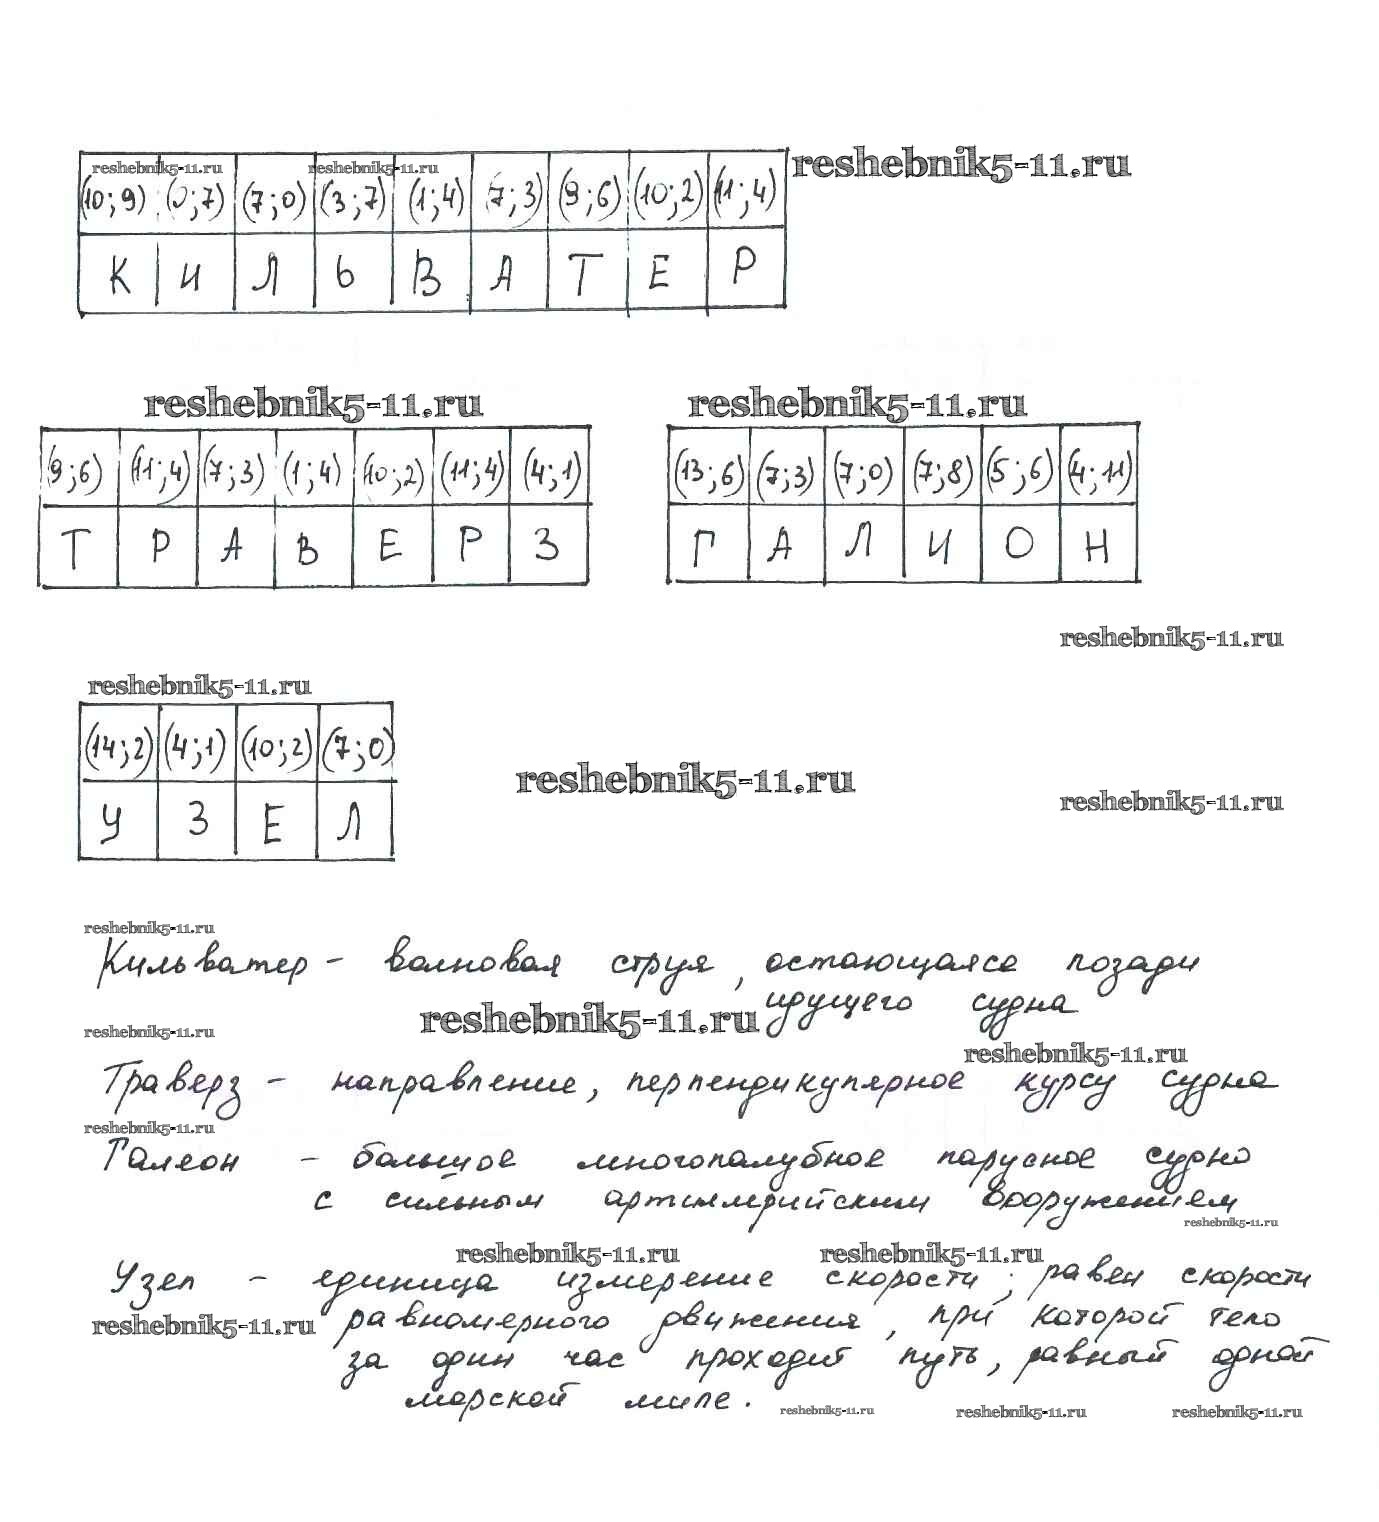 reshebnik5-11.ru reshebnik5-11.ru reshebnik5-11.ru
(10;9) (0;7) (7;0) (3;7) (1;4) (7;3) (9;6) (10;2) (11;4)
К И Л Ь В А Т Е Р
reshebnik5-11.ru reshebnik5-11.ru
(9;6) (11;4) (7;3) (1;4) (10;2) (11;4) (4;1)
Т Р А В Е Р З
(13;6) (7;3) (7;0) (7;8) (5;6) (4;11)
Г А Л И О Н
reshebnik5-11.ru
reshebnik5-11.ru
(14;2) (4;1) (10;2) (7;0)
У З Е Л
reshebnik5-11.ru
reshebnik5-11.ru
reshebnik5-11.ru
Кильватер – волновая струя, остающаяся позади
идущего судна
reshebnik5-11.ru
reshebnik5-11.ru
reshebnik5-11.ru
Траверз – направление, перпендикулярное курсу судна
reshebnik5-11.ru
Галеон – большое многопалубное парусное судно
с сильным артиллерийским вооружением
reshebnik5-11.ru
reshebnik5-11.ru reshebnik5-11.ru
Узел – единица измерение скорости, равен скорости
reshebnik5-11.ru
равномерного движения, при которой тело
за один час проходит путь, равный одной
морской миле.
reshebnik5-11.ru reshebnik5-11.ru reshebnik5-11.ru